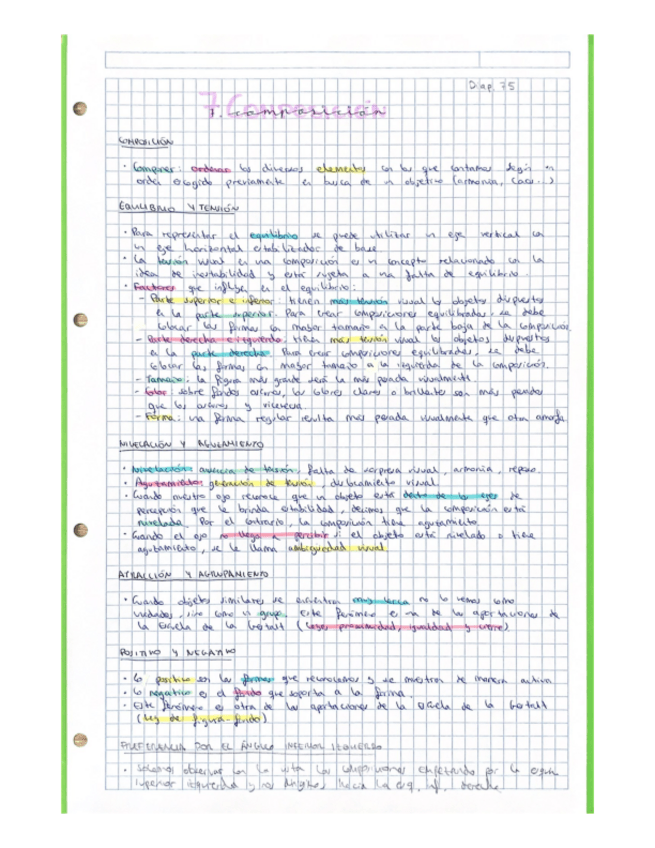 Diap. 75
7. Composición
COMPOSICIÓN
· Componer: ordenar los diversos elementos con los que contamos según un
orden escogido previamente en busca de un objetivo (armonía, caos...)
EQUILIBRIO Y TENSIÓN
· Para representar el equilibrio se puede utilizar un eje vertical con
un eje horizontal estabilizador de base.
· La tensión visual en una composición es un concepto relacionado con la
idea de inestabilidad y está sujeta a una falta de equilibrio.
· Factores que influyen en el equilibrio:
- Parte superior e inferior: tienen más tensión visual los objetos dispuestos
en la parte superior. Para crear composiciones equilibradas, se debe
colocar las formas con mayor tamaño en la parte baja de la composición.
- Parte derecha e izquierda: tienen más tensión visual los objetos dispuestos
en la parte derecha. Para crear composiciones equilibradas, se debe
colocar las formas con mayor tamaño a la izquierda de la composición.
- Tamaño: la figura más grande será la más pesada visualmente.
- Color: sobre fondos oscuros, los colores claros o brillantes son más pesados
que los oscuros y viceversa.
- Forma: una forma regular resulta más pesada visualmente que otra amorfa.
NIVELACIÓN Y AGUZAMIENTO
· Nivelación: ausencia de tensión, falta de sorpresa visual, armonía, reposo.
· Aguzamiento: generación de tensión, desbocamiento visual.
· Cuando nuestro ojo reconoce que un objeto está dentro de los ejes de
percepción que le brinda estabilidad, decimos que la composición está
nivelada. Por el contrario, la composición tiene aguzamiento.
· Cuando el ojo no llega a percibir si el objeto está nivelado o tiene
aguzamiento, se le llama ambigüedad visual.
ATRACCIÓN Y AGRUPAMIENTO
· Cuando objetos similares se encuentran muy cerca no lo vemos como
unidades, sino como un grupo. Este fenómeno es una de las aportaciones de
la Escuela de la Gestalt (Leyes proximidad, igualdad y cierre)
POSITIVO Y NEGATIVO
· Lo positivo son las formas que reconocemos y se muestran de manera activa.
· Lo negativo es el fondo que soporta a la forma.
· Este fenómeno es otra de las aportaciones de la Escuela de la Gestalt
(Ley de figura-fondo)
PREFERENCIA POR EL ÁNGULO INFERIOR IZQUIERDO
· Solemos observar con la vista las composiciones empezando por la esquina
superior izquierda y nos dirigimos hacia la esq. inf. derecha